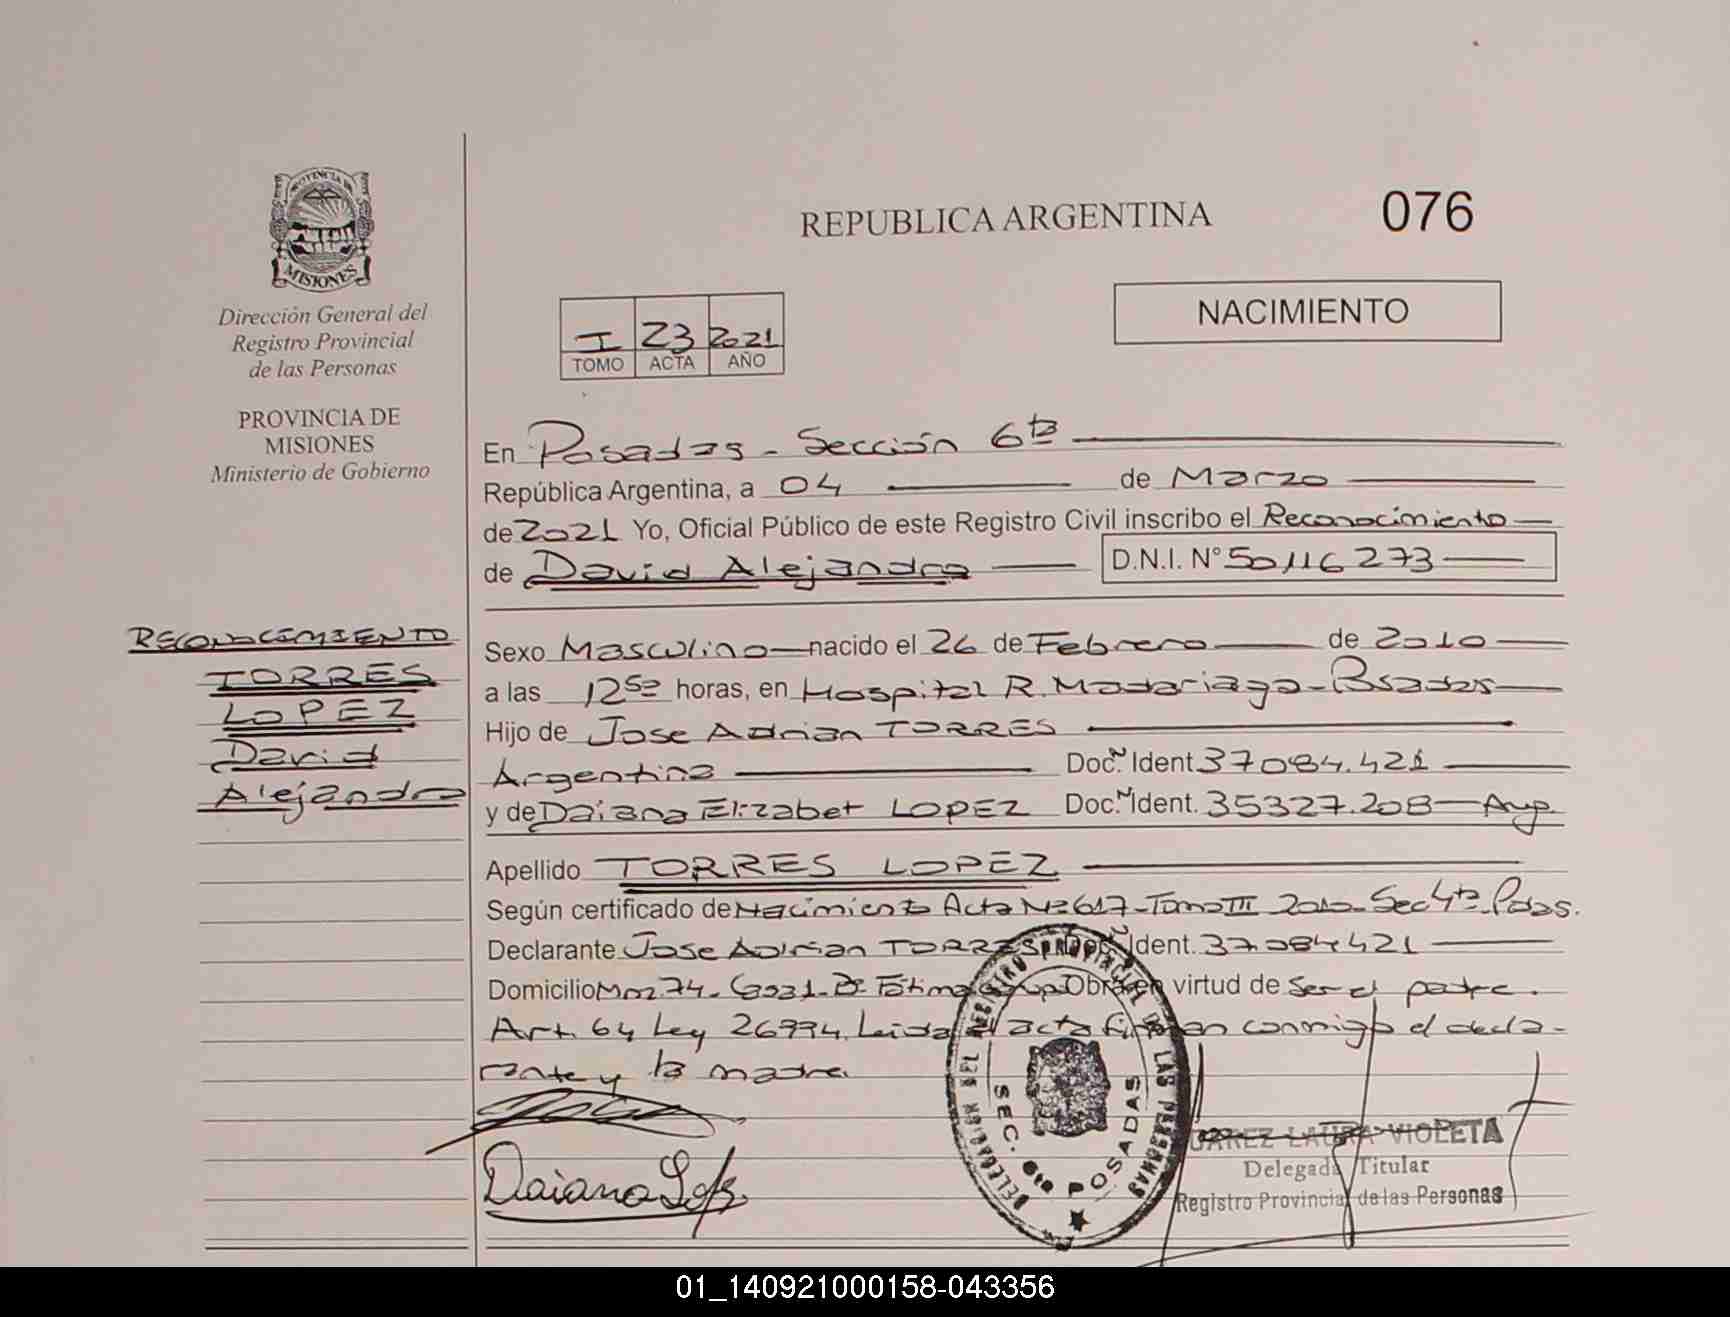 PROVINCIA DE
MISIONES
Dirección General del
Registro Provincial
de las Personas
PROVINCIA DE
MISIONES
Ministerio de Gobierno
REPUBLICA ARGENTINA
076
NACIMIENTO
I 23 2021
TOMO ACTA AÑO
En Posadas - Sección 6ta
República Argentina, a 04 de Marzo
de 2021 Yo, Oficial Público de este Registro Civil inscribo el Reconocimiento
de David Alejandro D.N.I. N° 50116273
RECONOCIMIENTO
TORRES
LOPEZ
David
Alejandro
Sexo Masculino nacido el 26 de Febrero de 2010
a las 12 50 horas, en Hospital R. Madariaga - Posadas
Hijo de Jose Adrian TORRES
Argentina Doc. Ident 37084.421
y de Daiana Elizabet LOPEZ Doc. Ident. 35327.208 - Arg.
Apellido TORRES LOPEZ
Según certificado de Nacimiento Acta Nº 617 - Tomo III 2010 - Sec 4ta - Pdas.
Declarante Jose Adrian TORRES Doc. Ident. 37.084421
Domicilio Mnz. 74 - Casa 1 - Bº Fátima Obra en virtud de ser el padre.
Art. 64 Ley 26994. Leida el acta firman conmigo el decla-
rante y la madre.
Daiana
DELEGACION DEL REGISTRO PROVINCIAL DE LAS PERSONAS
SEC. 6ta POSADAS
LAURA VIOLETA
Delegada Titular
Registro Provincial de las Personas
01_140921000158-043356